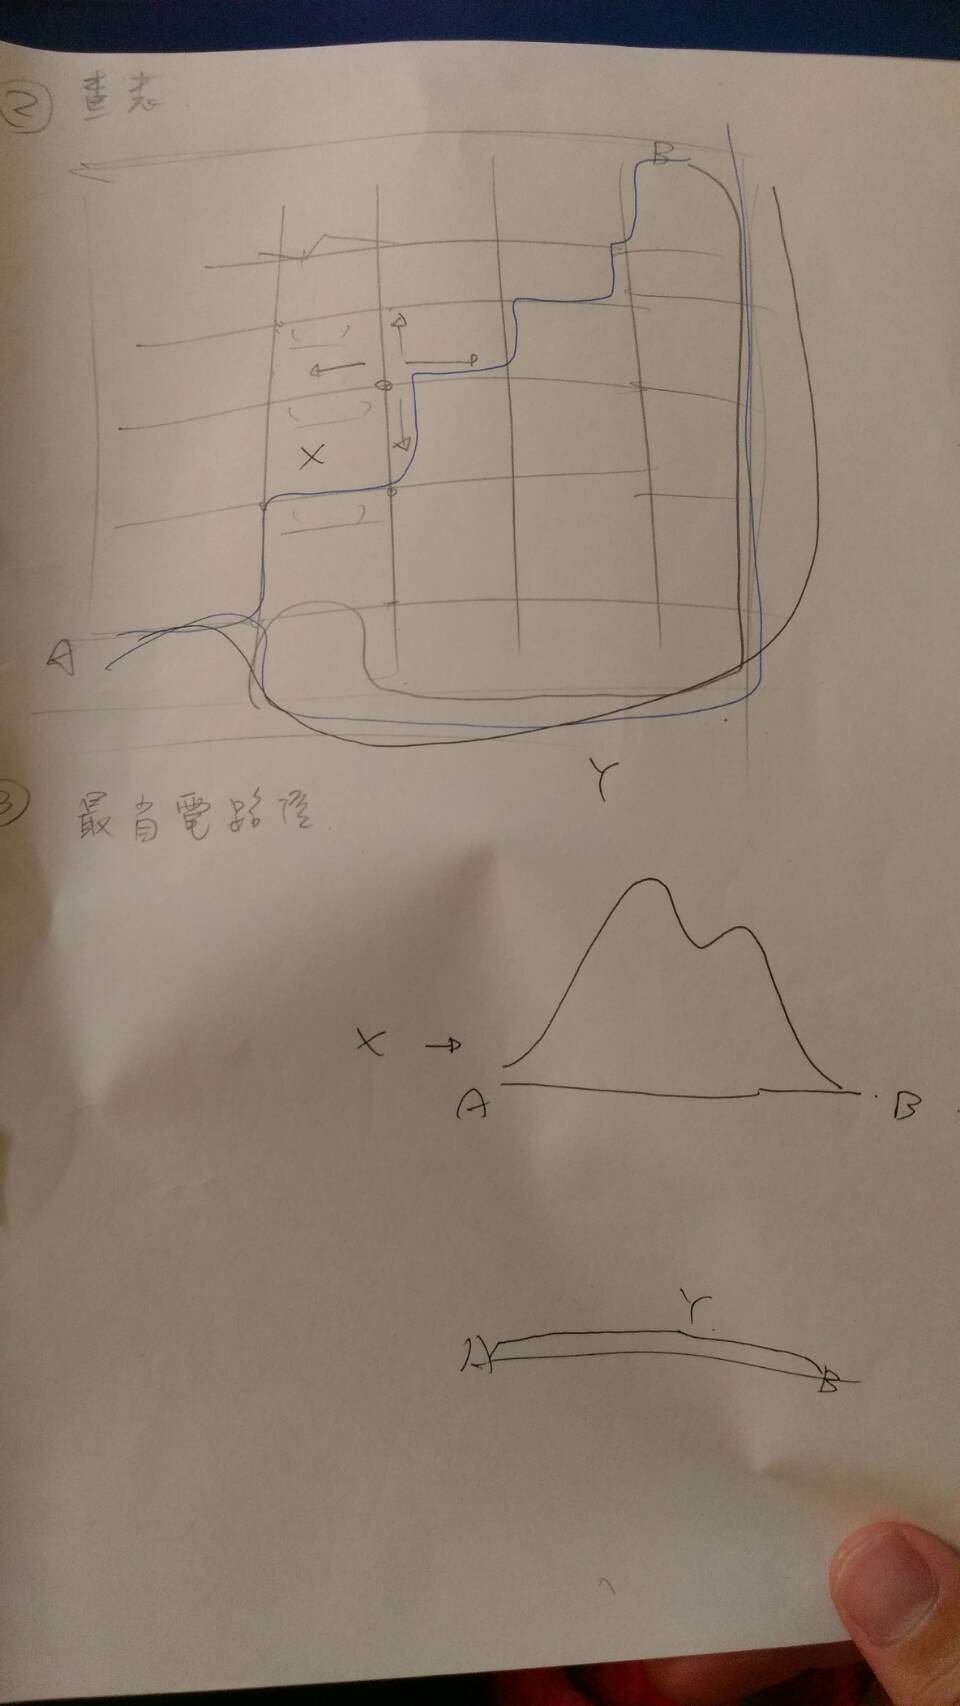 ② 查表
B
X
A
Y
③ 最省電路徑
X →
A B
Y
A B